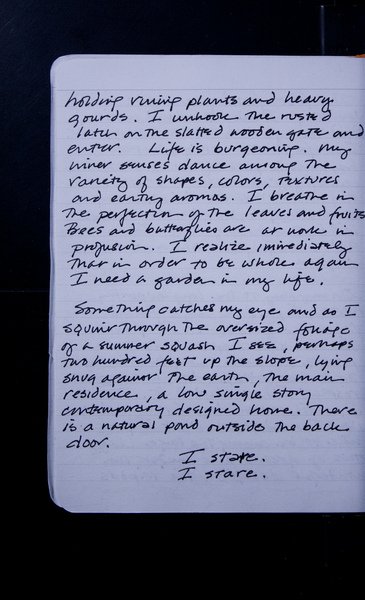 holding vining plants and heavy
gourds. I unhook the rusted
latch on the slatted wooden gate and
enter. Life is burgeoning. My
inner senses dance among the
variety of shapes, colors, textures
and earthy aromas. I breathe in
the perfection of the leaves and fruits.
Bees and butterflies are at work in
profusion. I realize immediately
that in order to be whole again
I need a garden in my life.
Something catches my eye and as I
squint through the oversized foliage
of a summer squash I see, perhaps
two hundred feet up the slope, lying
snug against the earth, the main
residence, a low single story
contemporary designed home. There
is a natural pond outside the back
door.
I stare.
I stare.